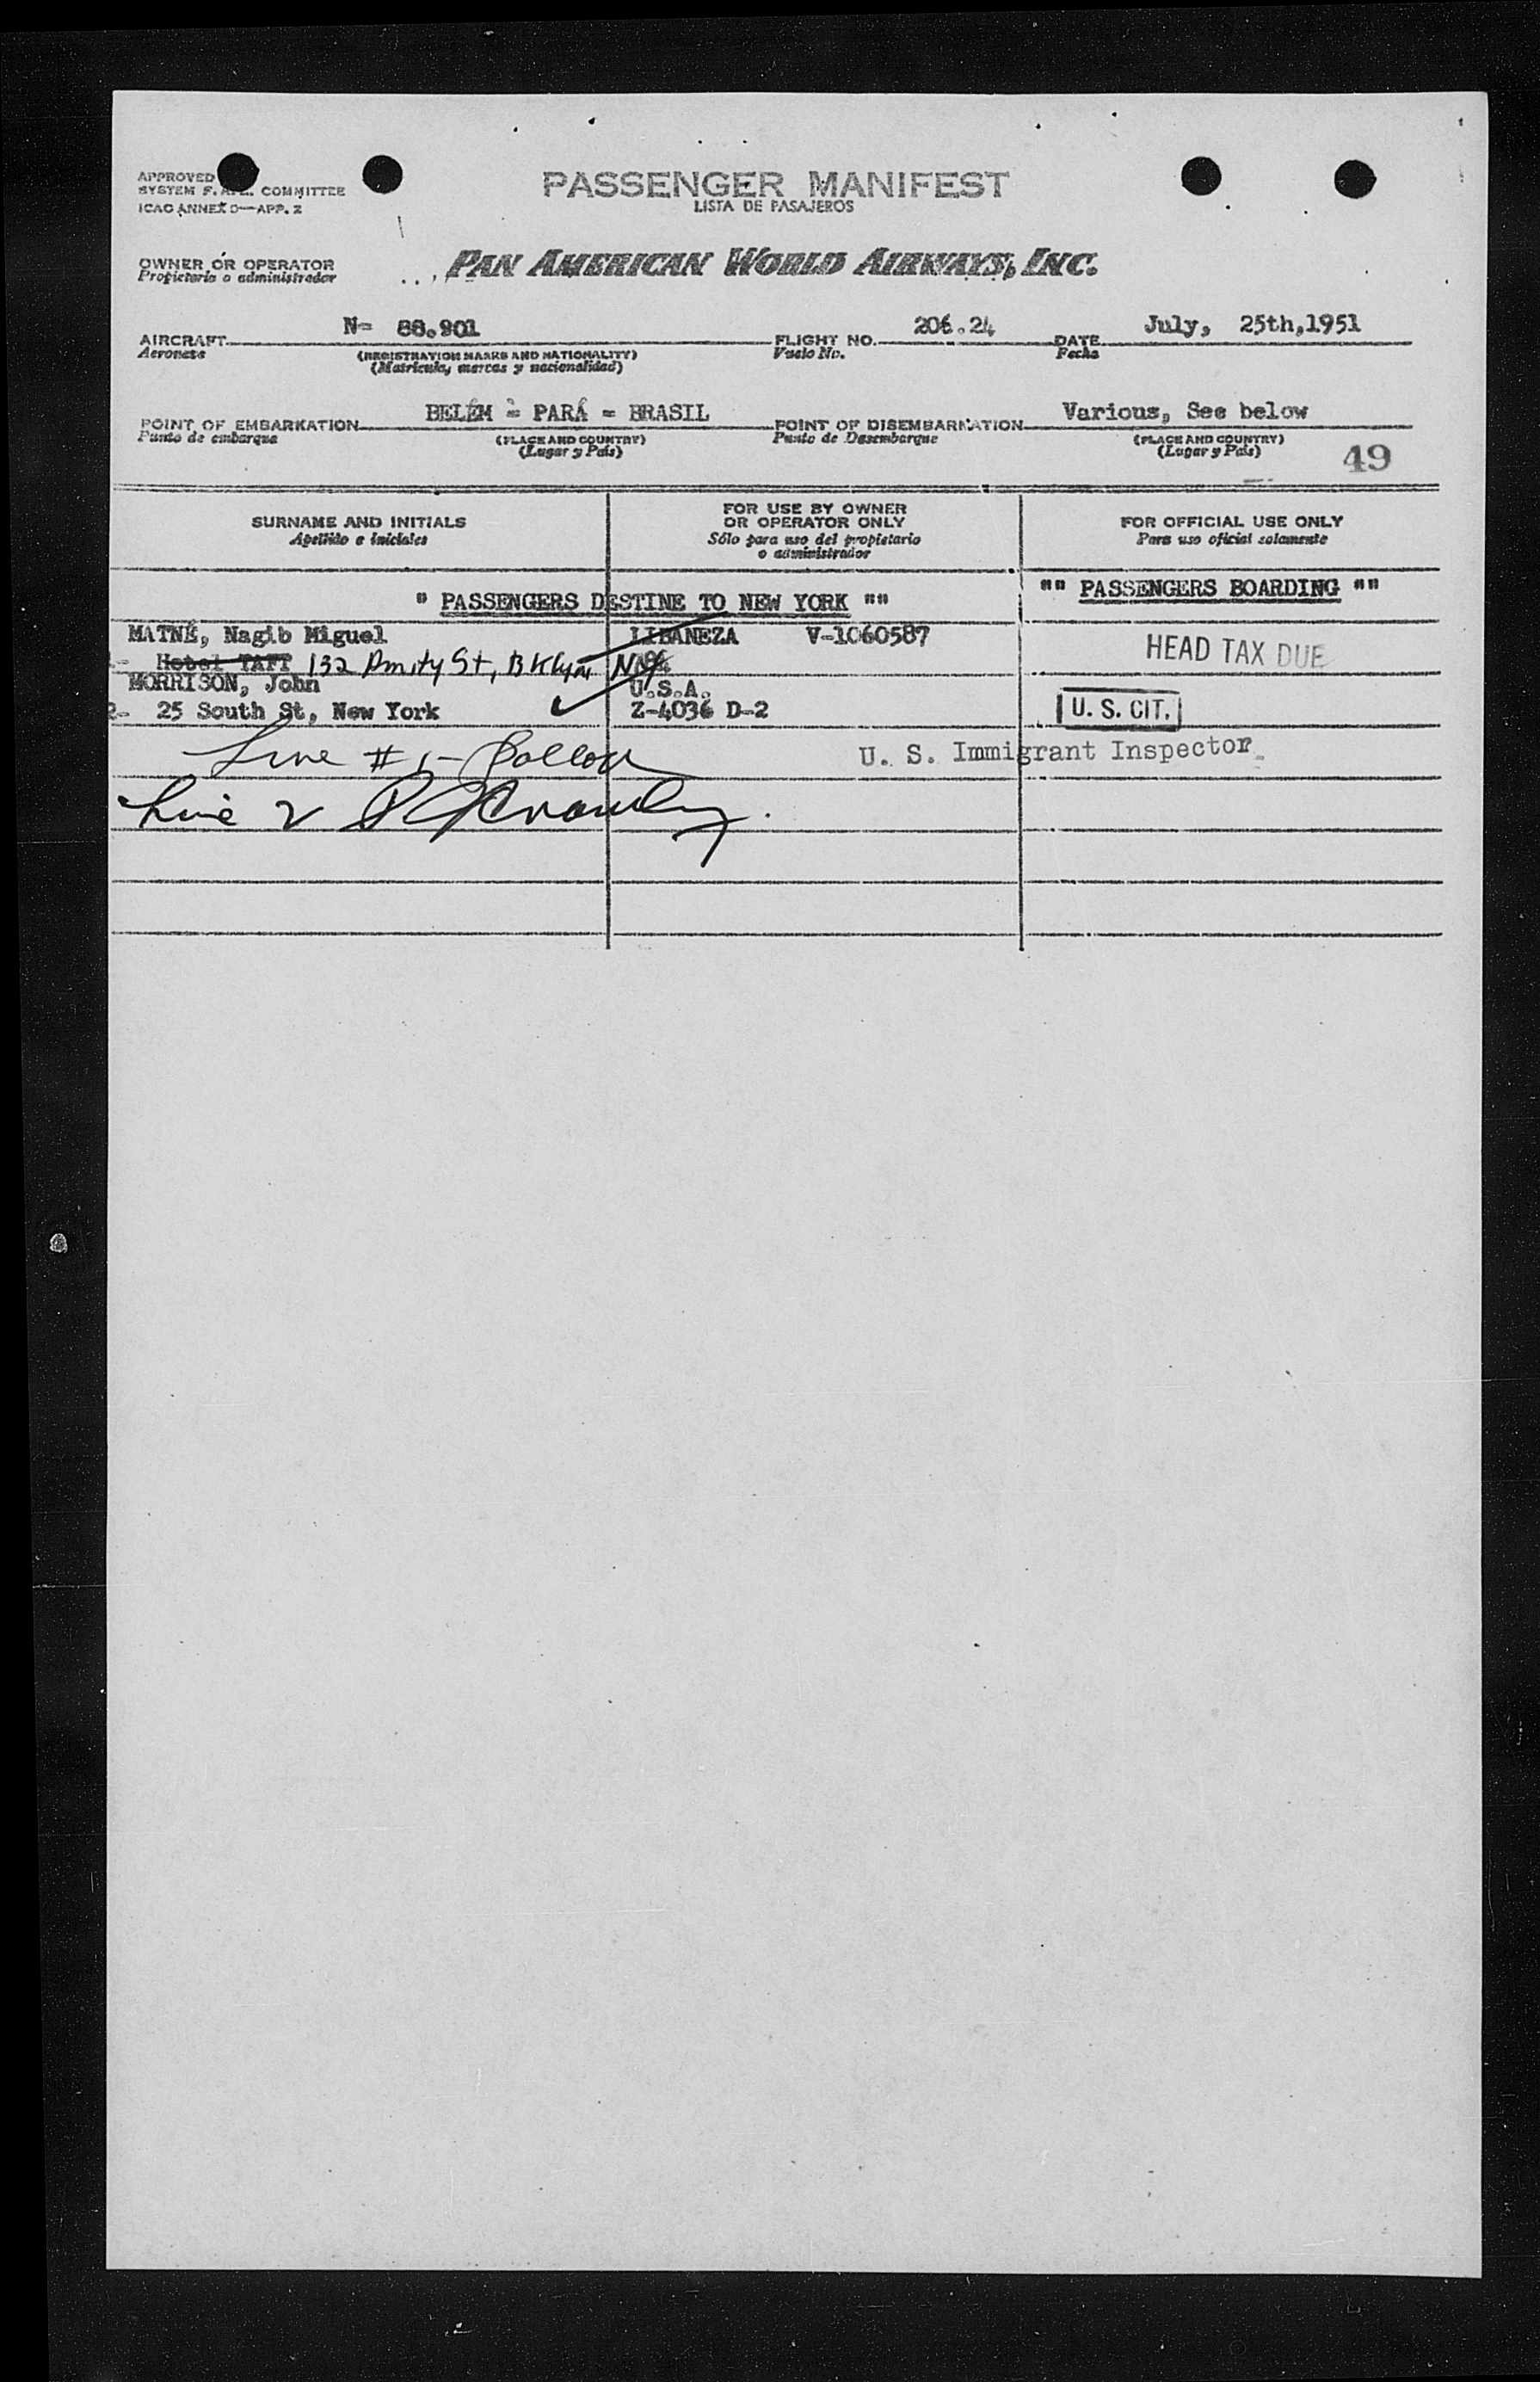 APPROVED
SYSTEM F. COMMITTEE
ICAO ANNEX D—APP. 2
PASSENGER MANIFEST
LISTA DE PASAJEROS
OWNER OR OPERATOR
Propietario o administrador
PAN AMERICAN WORLD AIRWAYS, INC.
AIRCRAFT N- 88.901 FLIGHT NO. 206.24 DATE July, 25th,1951
Aeronave (REGISTRATION MARKS AND NATIONALITY) Vuelo No. Fecha
(Matricula, marcas y nacionalidad)
POINT OF EMBARKATION BELÉM = PARÁ = BRASIL POINT OF DISEMBARKATION Various, See below
Punto de embarque (PLACE AND COUNTRY) Punto de Desembarque (PLACE AND COUNTRY)
(Lugar y País) (Lugar y País) 49
SURNAME AND INITIALS
Apellido e iniciales
FOR USE BY OWNER
OR OPERATOR ONLY
Sólo para uso del propietario
o administrador
FOR OFFICIAL USE ONLY
Para uso oficial solamente
" PASSENGERS DESTINE TO NEW YORK "" "" PASSENGERS BOARDING ""
MATNÉ, Nagib Miguel LIBANEZA V-1060587
Hotel TAFT 132 Amity St, Bklyn NY HEAD TAX DUE
MORRISON, John U.S.A.
2- 25 South St, New York Z-4036 D-2 U. S. CIT.
Line # 1-
U. S. Immigrant Inspector
Line 2